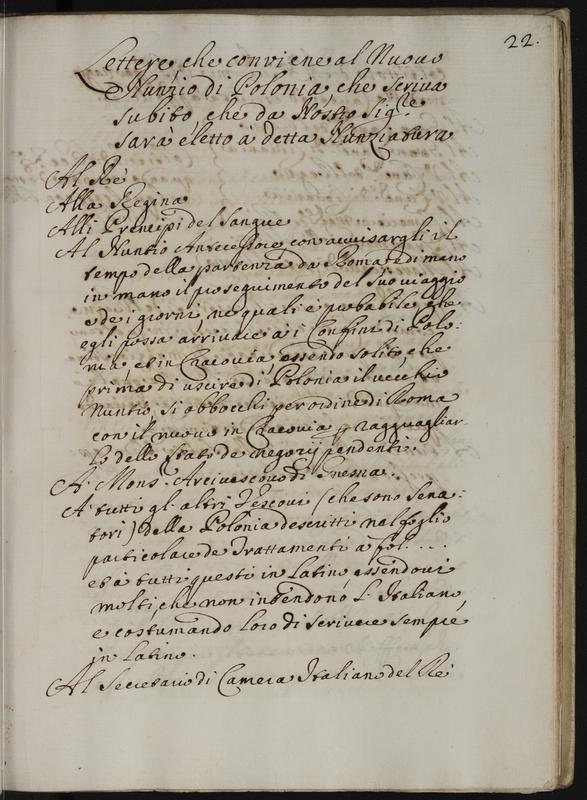 22.
Lettere, che conviene al Nuovo
Nunzio di Polonia che scriva
subito, che da Nostro Sig.re
sarà eletto à detta Nunziatura
Al Rè
Alla Regina
Alli Principi del sangue
Al Nuntio Antecessore con avvisargli il
tempo della partenza da Roma, e di mano
in mano il proseguimento del suo viaggio
e de i giorni, ne quali è probabile, che
egli possa arrivare a i Confini di Polo:
nia, et in Cracovia, essendo solito, che
prima di uscire di Polonia il vecchio
Nuntio, si abbocchi per ordine di Roma
con il nuovo in Cracovia p ragguagliar
lo dello stato de negorij pendenti.
A Mons. Arcivescovo di Gnesna.
A tutti gl'altri Vescovi (che sono Sena:
tori) della Polonia descritti nel foglio
particolare de Trattamenti a fol. ....
et à tutti questi in Latino essendovi
molti, che non intendono l'Italiano,
e costumando loro di scrivere sempre
in Latino.
Al Secretario di Camera Italiano del Rè